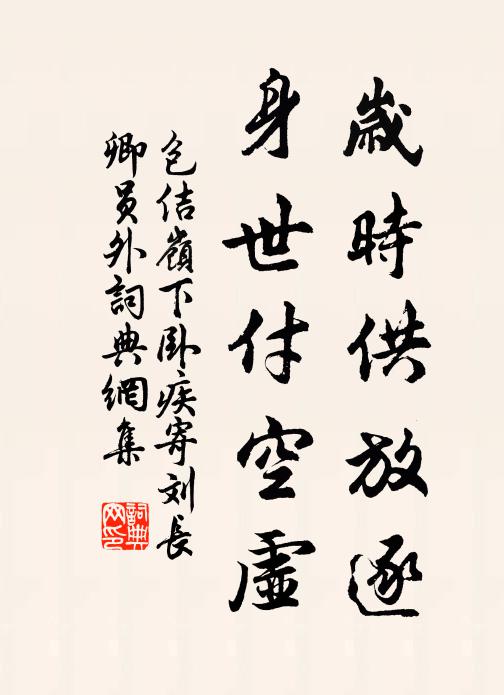 歲時供放逐
身世付空虛
包佶嶺下卧疾寄刘長
卿員外詞典網集
詞典
网印